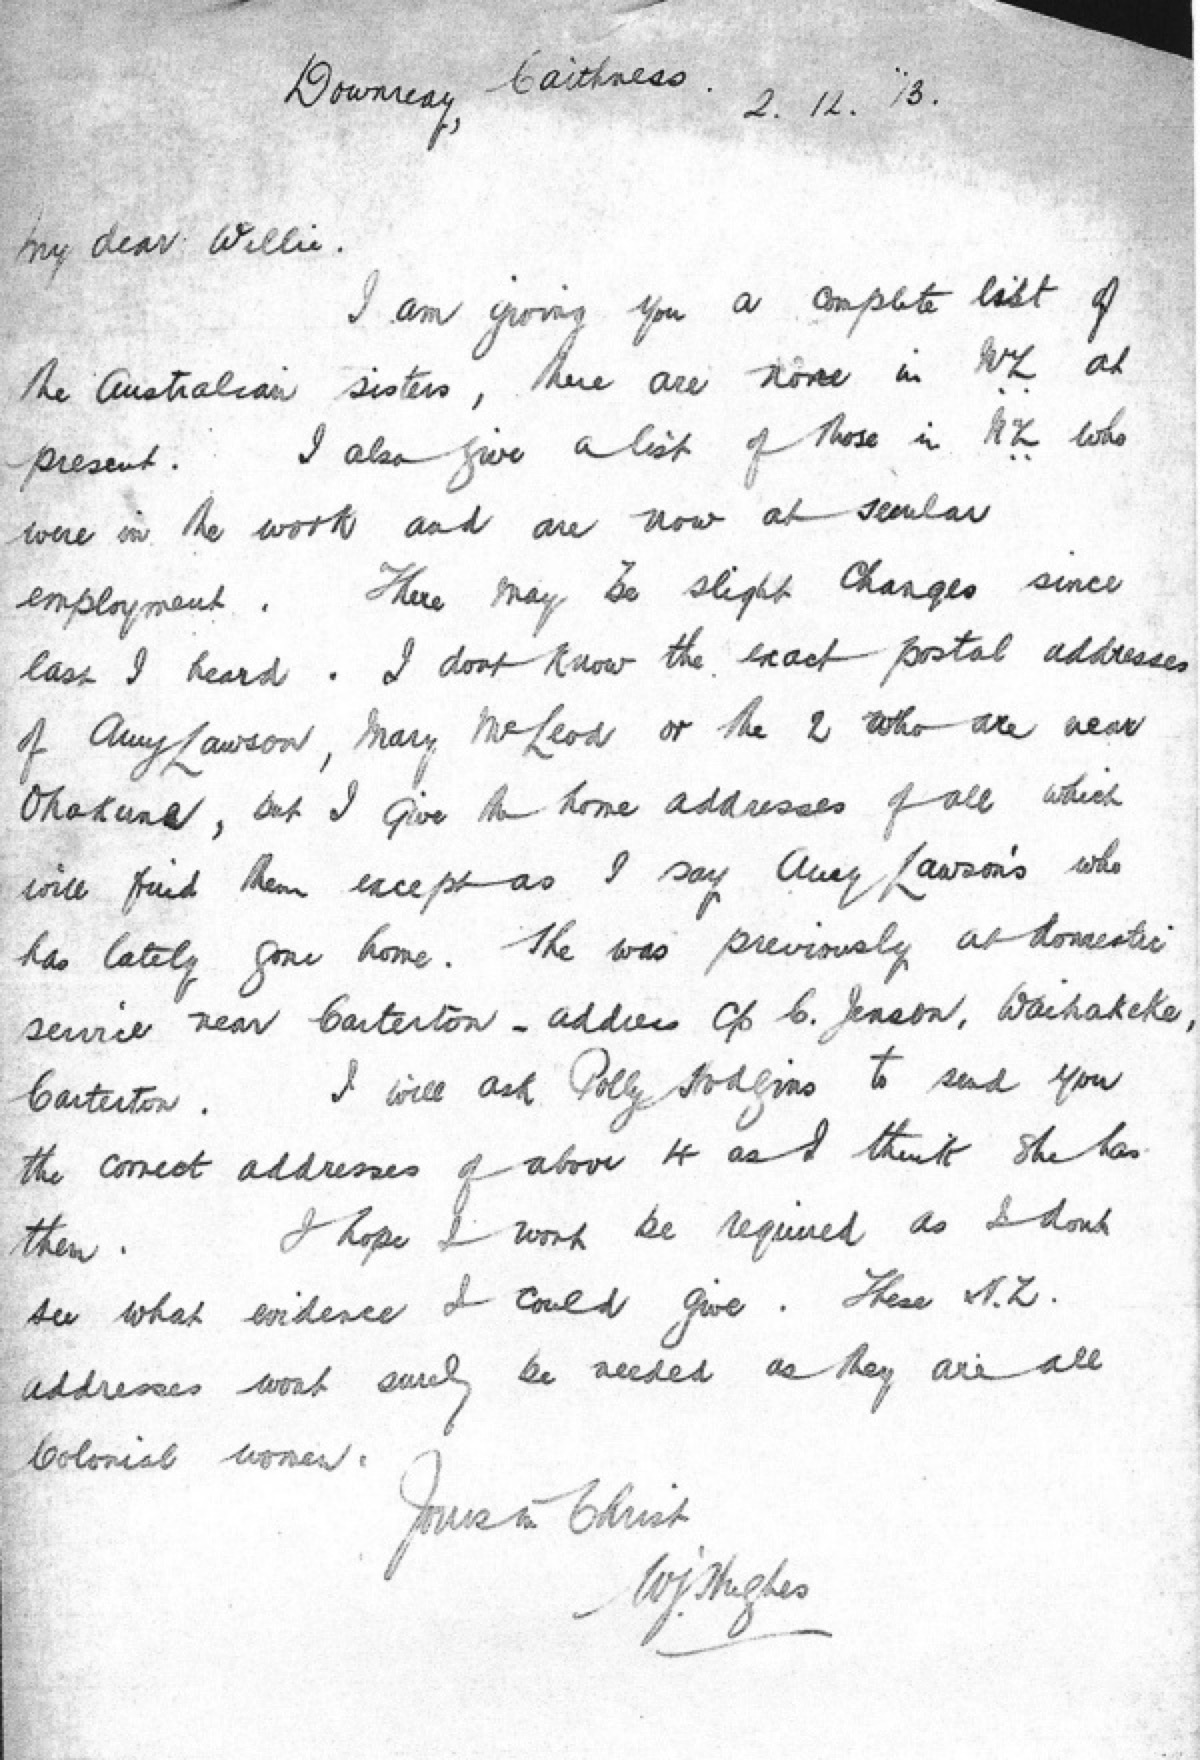 Downreay, Caithness. 2. 12. '13.
My dear Willie.
I am giving you a complete list of
the Australian sisters, there are none in NZ at
present. I also give a list of those in NZ who
were in the work and are now at secular
employment. There may be slight changes since
last I heard. I dont know the exact postal addresses
of Amy Lawson, Mary McLeod or the 2 who are near
Ohakune, but I give the home addresses of all which
will find them except as I say Amy Lawson's who
has lately gone home. She was previously at domestic
service near Carterton - address c/o C. Jenson, Waihakeke,
Carterton. I will ask Polly Hodgins to send you
the correct addresses of above 4 as I think she has
them. I hope I wont be required as I dont
see what evidence I could give. These N.Z.
addresses wont surely be needed as they are all
Colonial women.
Yours in Christ
WJ. Hughes